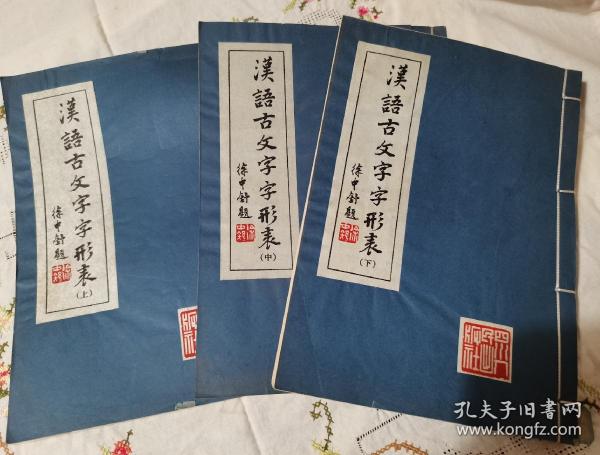 漢語古文字字形表(上)
徐中舒題
漢語古文字字形表(中)
徐中舒題
漢語古文字字形表(下)
徐中舒題
孔夫子旧書网
www.kongfz.com